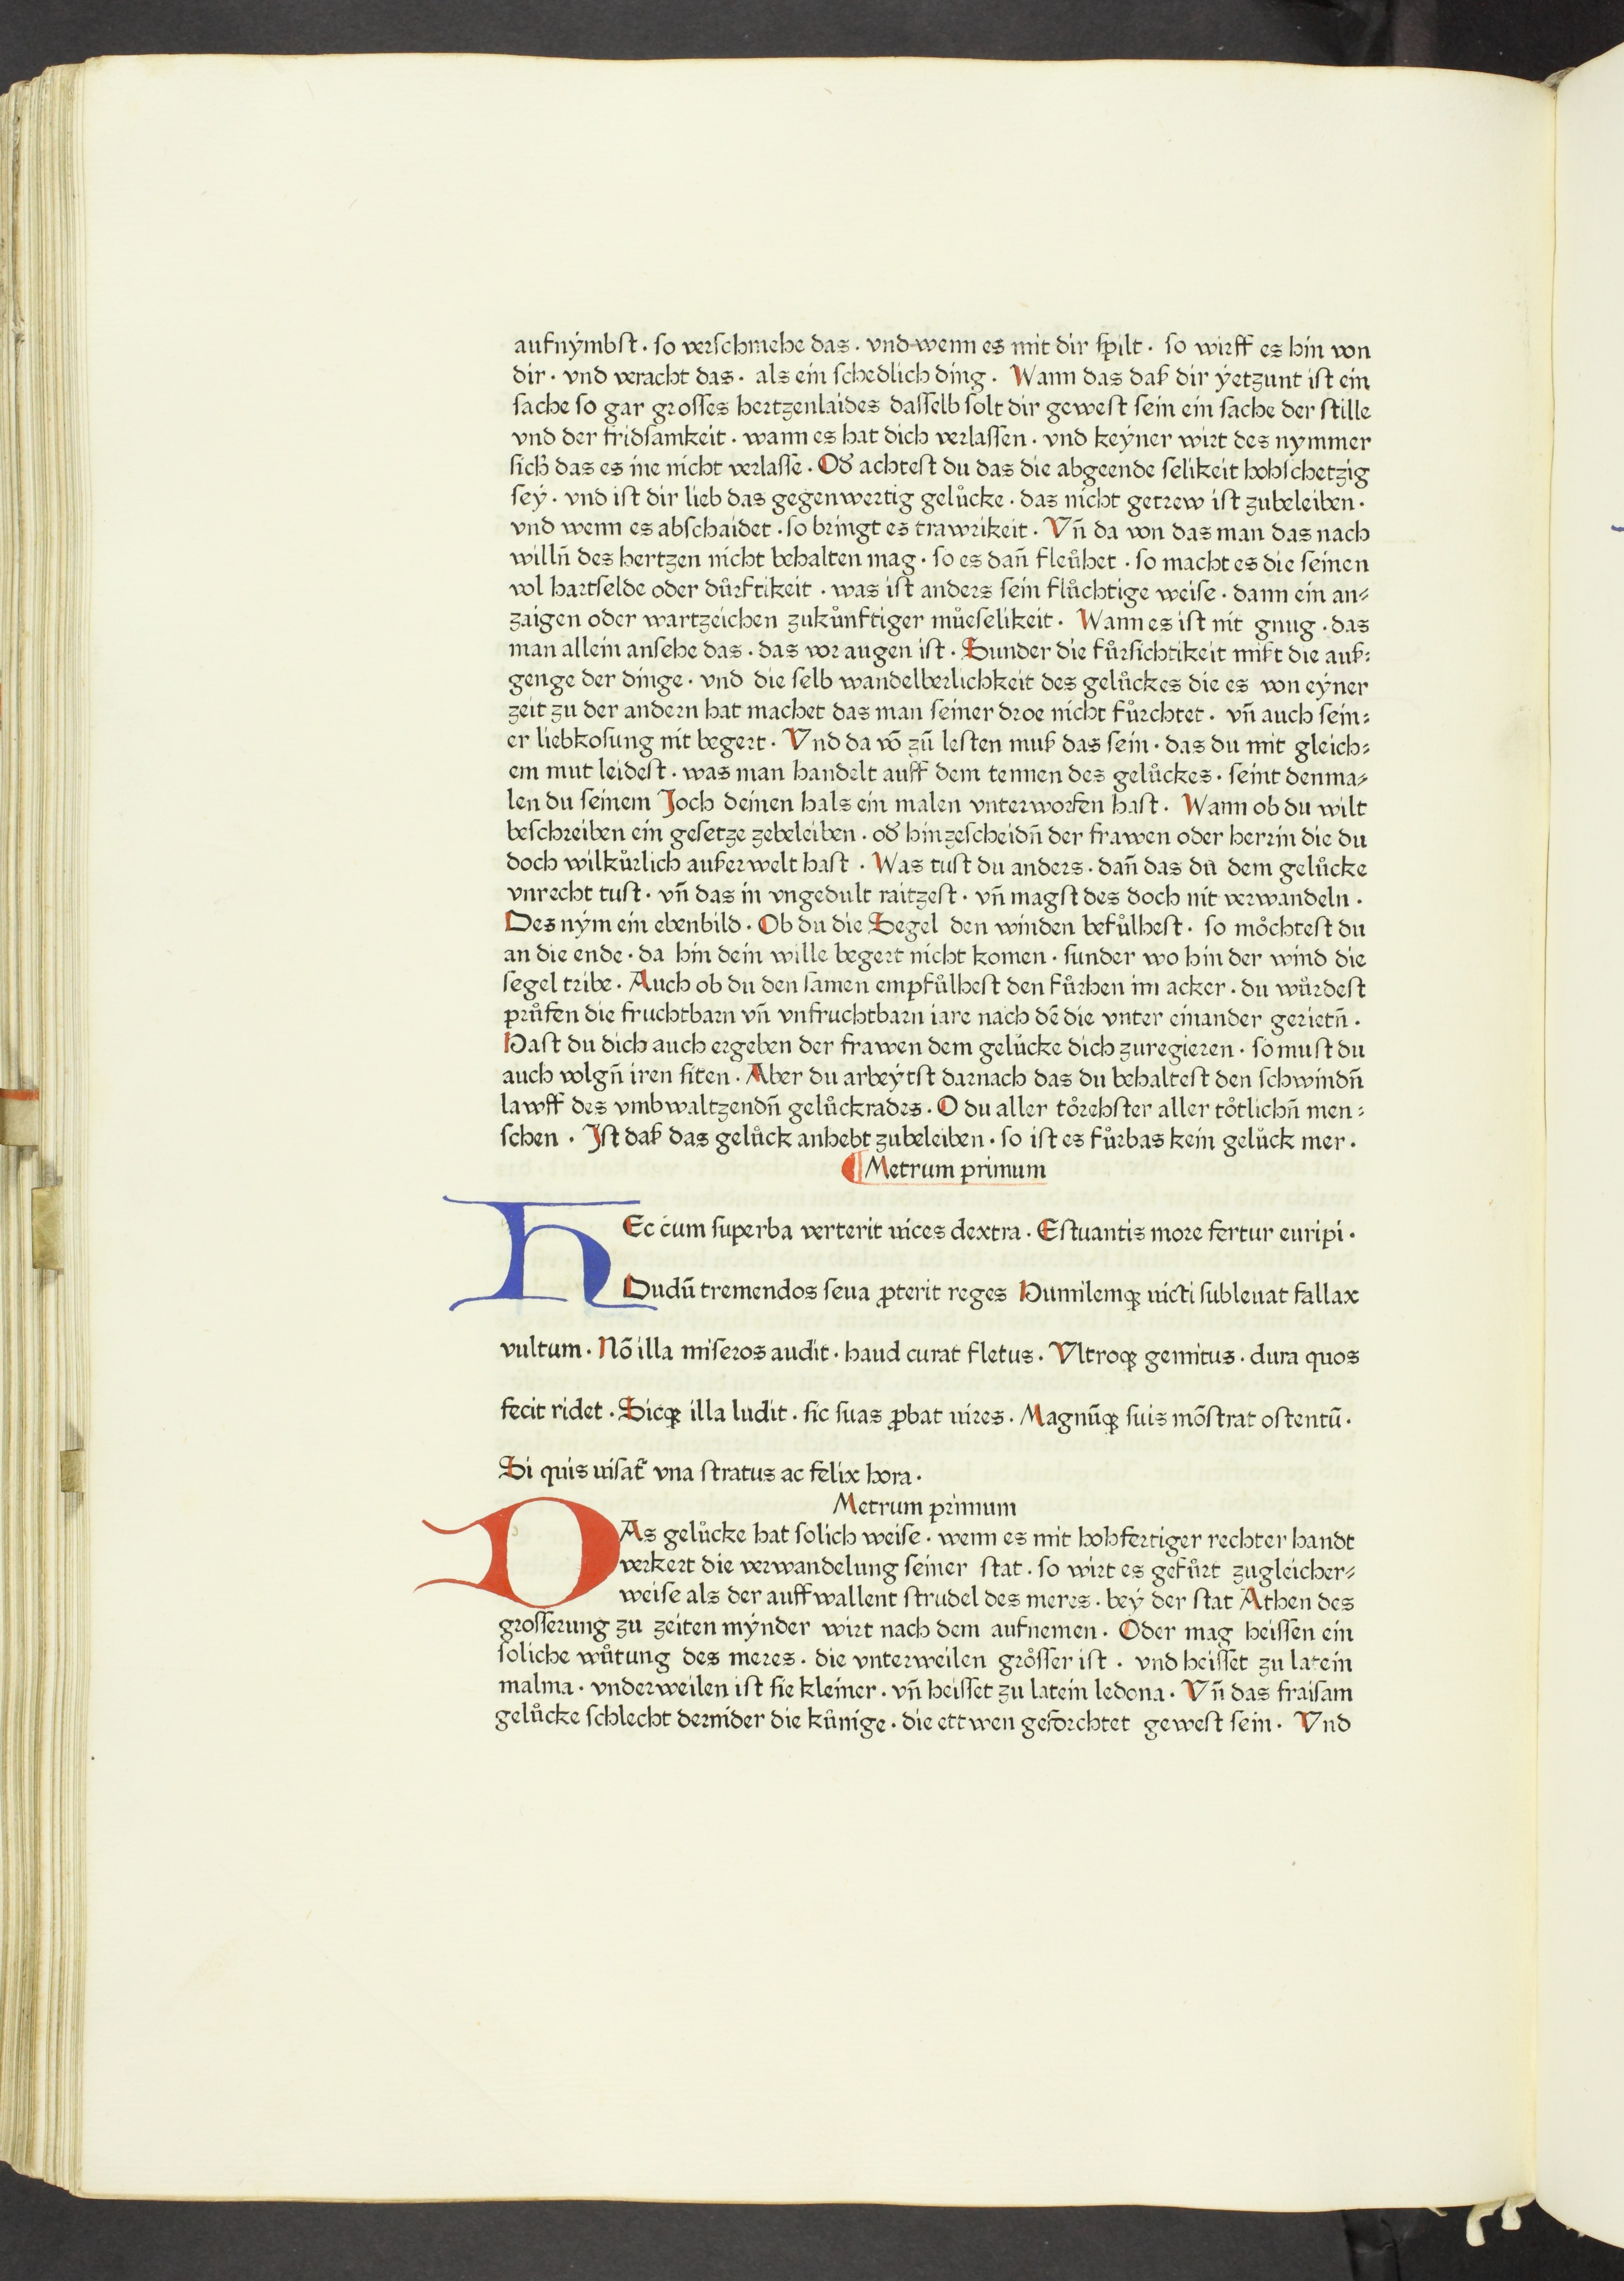 aufnýmbſt · ſo verſchmehe das · vnd wenn es mit dir ſpilt · ſo wirff es hin von
dir · vnd veracht das · als ein ſchedlich ding · Wann das daß dir ýetzunt iſt ein
ſache ſo gar groſſes hertzenlaides daſſelb ſolt dir geweſt ſein ein ſache der ſtille
vnd der fridſamkeit · wann es hat dich verlaſſen · vnd keýner wirt des nymmer
ſich̉ das es ine nicht verlaſſe · Od̉ achteſt du das die abgeende ſelikeit hohſchetzig
ſeý · vnd iſt dir lieb das gegenwertig gelůcke · das nicht getrew iſt zubeleiben ·
vnd wenn es abſchaidet · ſo bringt es trawrikeit · Vn̄ da von das man das nach
willn̄ des hertzen nicht behalten mag · ſo es dan̄ fleůhet · ſo macht es die ſeinen
vol hartſelde oder důrftikeit · was iſt anders ſein flůchtige weiſe · dann ein an⸗
zaigen oder wartzeichen zukůnftiger můeſelikeit · Wann es iſt nit gnug · das
man allein anſehe das · das vor augen iſt · Sunder die fůrſichtikeit mißt die auß⸗
genge der dinge · vnd die ſelb wandelberlichkeit des gelůckes die es von eýner
zeit zu der andern hat machet das man ſeiner droe nicht fůrchtet · vn̄ auch ſein⸗
er liebkoſung nit begert · Vnd da vō zū leſten muß das ſein · das du mit gleich⸗
em mut leideſt · was man handelt auff dem tennen des gelůckes · ſeint denma⸗
len du ſeinem Joch deinen hals ein malen vnterworfen haſt · Wann ob du wilt
beſchreiben ein geſetze zebeleiben · od̉ hinzeſcheidn̄ der frawen oder herrin die du
doch wilkůrlich außerwelt haſt · Was tuſt du anders · dan̄ das du dem gelůcke
vnrecht tuſt · vn̄ das in vngedult raitzeſt · vn̄ magſt des doch nit verwandeln ·
Des ným ein ebenbild · Ob du die Segel den winden befůlheſt · ſo mőchteſt du
an die ende · da hin dein wille begert nicht komen · ſunder wo hin der wind die
ſegel tribe · Auch ob du den ſamen empfůlheſt den fůrhen im acker · du wůrdeſt
průfen die fruchtbarn vn̄ vnfruchtbarn iare nach dē die vnter einander gerietn̄ ·
Haſt du dich auch ergeben der frawen dem gelůcke dich zuregieren · ſo muſt du
auch volgn̄ iren ſiten · Aber du arbeýtſt darnach das du behalteſt den ſchwindn̄
lawff des vmbwaltzendn̄ gelůckrades · O du aller tőrehſter aller tőtlichn̄ men⸗
ſchen · Jſt daß das gelůck anhebt zubeleiben · ſo iſt es fůrbas kein gelůck mer ·
¶ Metrum primum
HEc cum ſuperba verterit uices dextra · Eſtuantis more fertur euripi ·
Dudū tremendos ſeua ꝓterit reges Humilemq̄ uicti ſubleuat fallax
vultum · Nō illa miſeros audit · haud curat fletus · Vltroq̄ gemitus · dura quos
fecit ridet · Sicq̄ illa ludit · ſic ſuas ꝓbat uires · Magnūq̄ ſuis mōſtrat oſtentū ·
Si quis uiſat̄ vna ſtratus ac felix hora ·
Metrum primum
DAs gelůcke hat ſolich weiſe · wenn es mit hohfertiger rechter handt
verkert die verwandelung ſeiner ſtat · ſo wirt es gefůrt zugleicher⸗
weiſe als der auffwallent ſtrudel des meres · beý der ſtat Athen des
groſſerung zu zeiten mýnder wirt nach dem aufnemen · Oder mag heiſſen ein
ſoliche wůtung des meres · die vnterweilen grőſſer iſt · vnd heiſſet zu latein
malma · vnderweilen iſt ſie kleiner · vn̄ heiſſet zu latein ledona · Vn̄ das fraiſam
gelůcke ſchlecht dernider die kůnige · die ettwen geforchtet geweſt ſein · Vnd